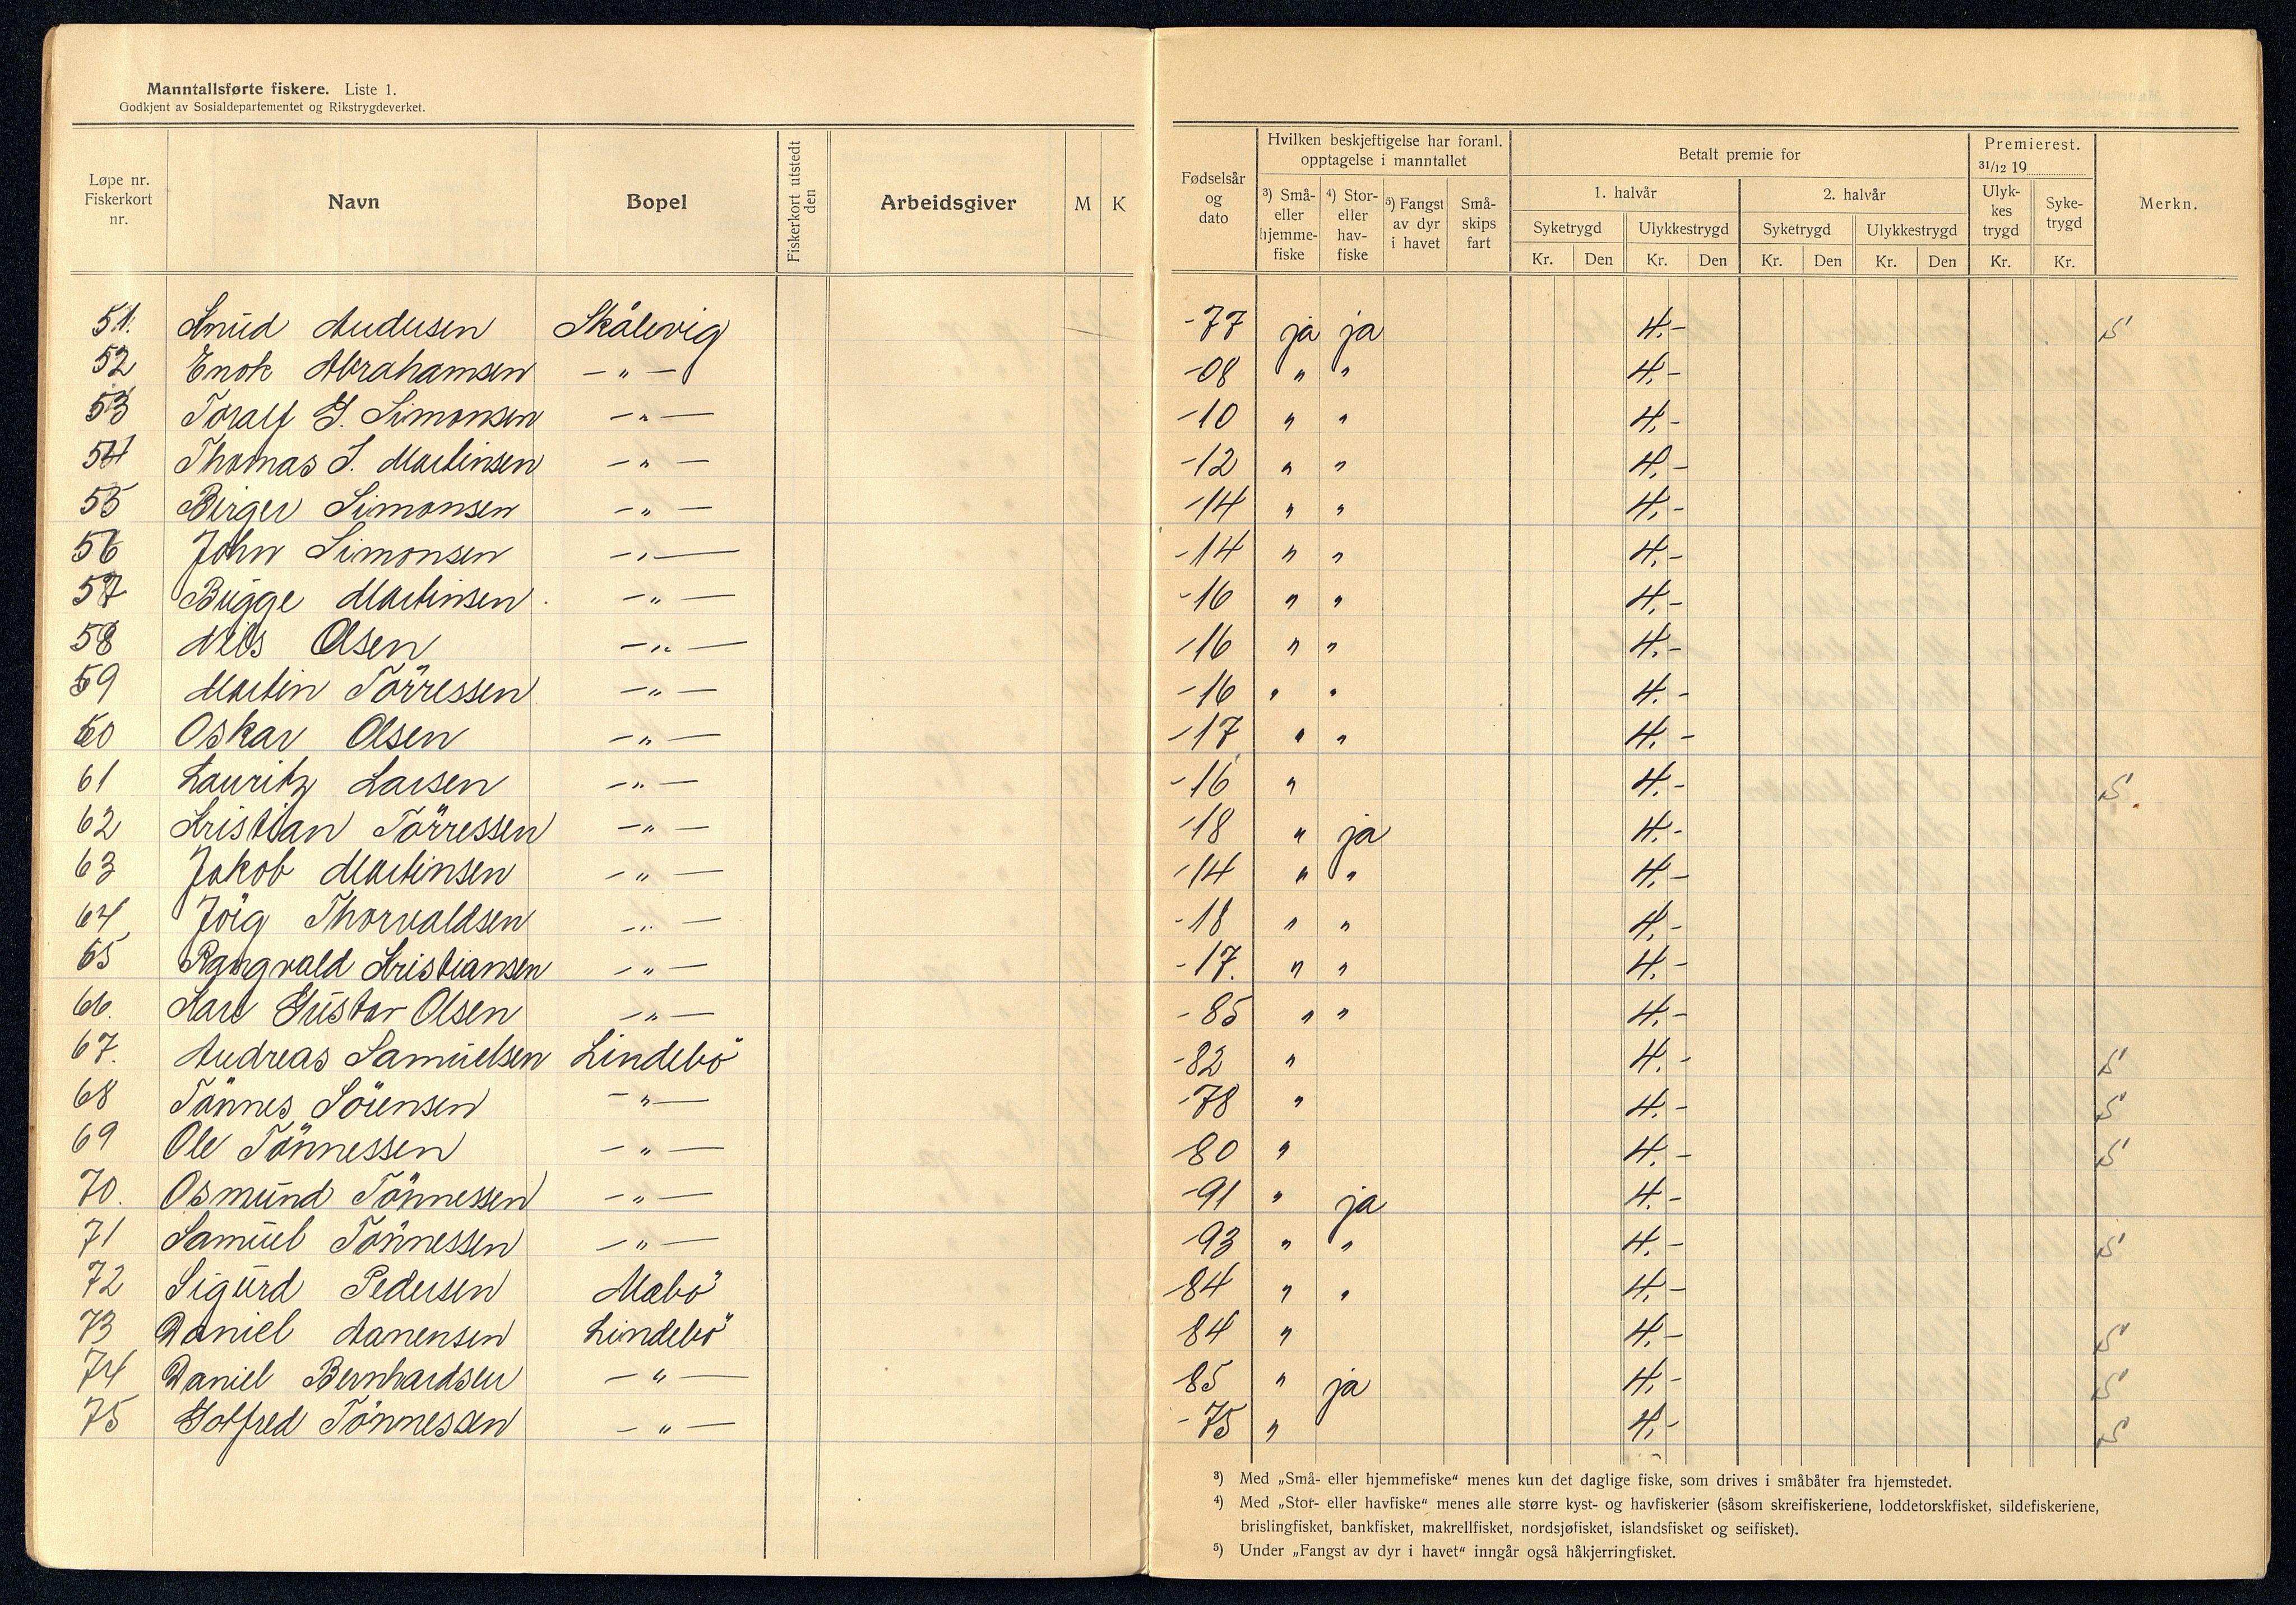 Manntallsførte fiskere. Liste 1.
Godkjent av Sosialdepartementet og Rikstrygdeverket.
Løpe nr. Fiskerkort nr. Navn Bopel Fiskerkort utstedt den Arbeidsgiver M K
Fødselsår og dato
Hvilken beskjeftigelse har foranl. opptagelse i manntallet
³) Små- eller hjemme- fiske ⁴) Stor- eller hav- fiske ⁵) Fangst av dyr i havet Små- skips fart
Betalt premie for
1. halvår 2. halvår
Syketrygd Ulykkestrygd Syketrygd Ulykkestrygd
Kr. Den Kr. Den Kr. Den Kr. Den
Premierest. 31/12 19
Ulyk- kes trygd Syke- trygd
Kr. Kr.
Merkn.
51. Knud Audusen Skålevig -77 ja ja 4.- S
52 Enok Abrahamsen - " - -08 " " 4.-
53 Toralf G. Simonsen - " - -10 " " 4.-
54 Thomas S. Martinsen - " - -12 " " 4.-
55 Birger Simonsen - " - -14 " " 4.-
56 John Simonsen - " - -14 " " 4.-
57 Bugge Martinsen - " - -16 " " 4.-
58 Nils Olsen - " - -16 " " 4.-
59 Martin Törressen - " - -16 " " 4.-
60 Oskar Olsen - " - -17 " " 4.-
61 Lauritz Larsen - " - -16 " 4.- S.
62 Kristian Törressen - " - -18 " ja 4.-
63 Jakob Martinsen - " - -14 " " 4.-
64 Jörg Thorvaldsen - " - -18 " " 4.-
65 Rangvald Kristiansen - " - -17. " " 4.-
66. Karl Gustav Olsen - " - -85 " " 4.-
67. Andreas Samuelsen Lindebö -82 " 4.- S
68 Tönnes Sörensen - " - -78 " 4.- S
69 Ole Tönnessen - " - -80 " 4.- S
70. Osmund Tönnessen - " - -91 " ja 4.-
71 Samuel Tönnessen - " - -93 " " 4.- S
72 Sigurd Pedersen Mebö -84 " " 4.-
73 Daniel Aanensen Lindebö -84 " 4.- S
74 Daniel Bernhardsen - " - -85 " ja 4.- S
75 Gotfred Tönnessen - " - -75 " 4.- S
³) Med „Små- eller hjemmefiske“ menes kun det daglige fiske, som drives i småbåter fra hjemstedet.
⁴) Med „Stor- eller havfiske“ menes alle større kyst- og havfiskerier (såsom skreifiskeriene, loddetorskfisket, sildefiskeriene,
brislingfisket, bankfisket, makrellfisket, nordsjøfisket, islandsfisket og seifisket).
⁵) Under „Fangst av dyr i havet“ inngår også håkjerringfisket.